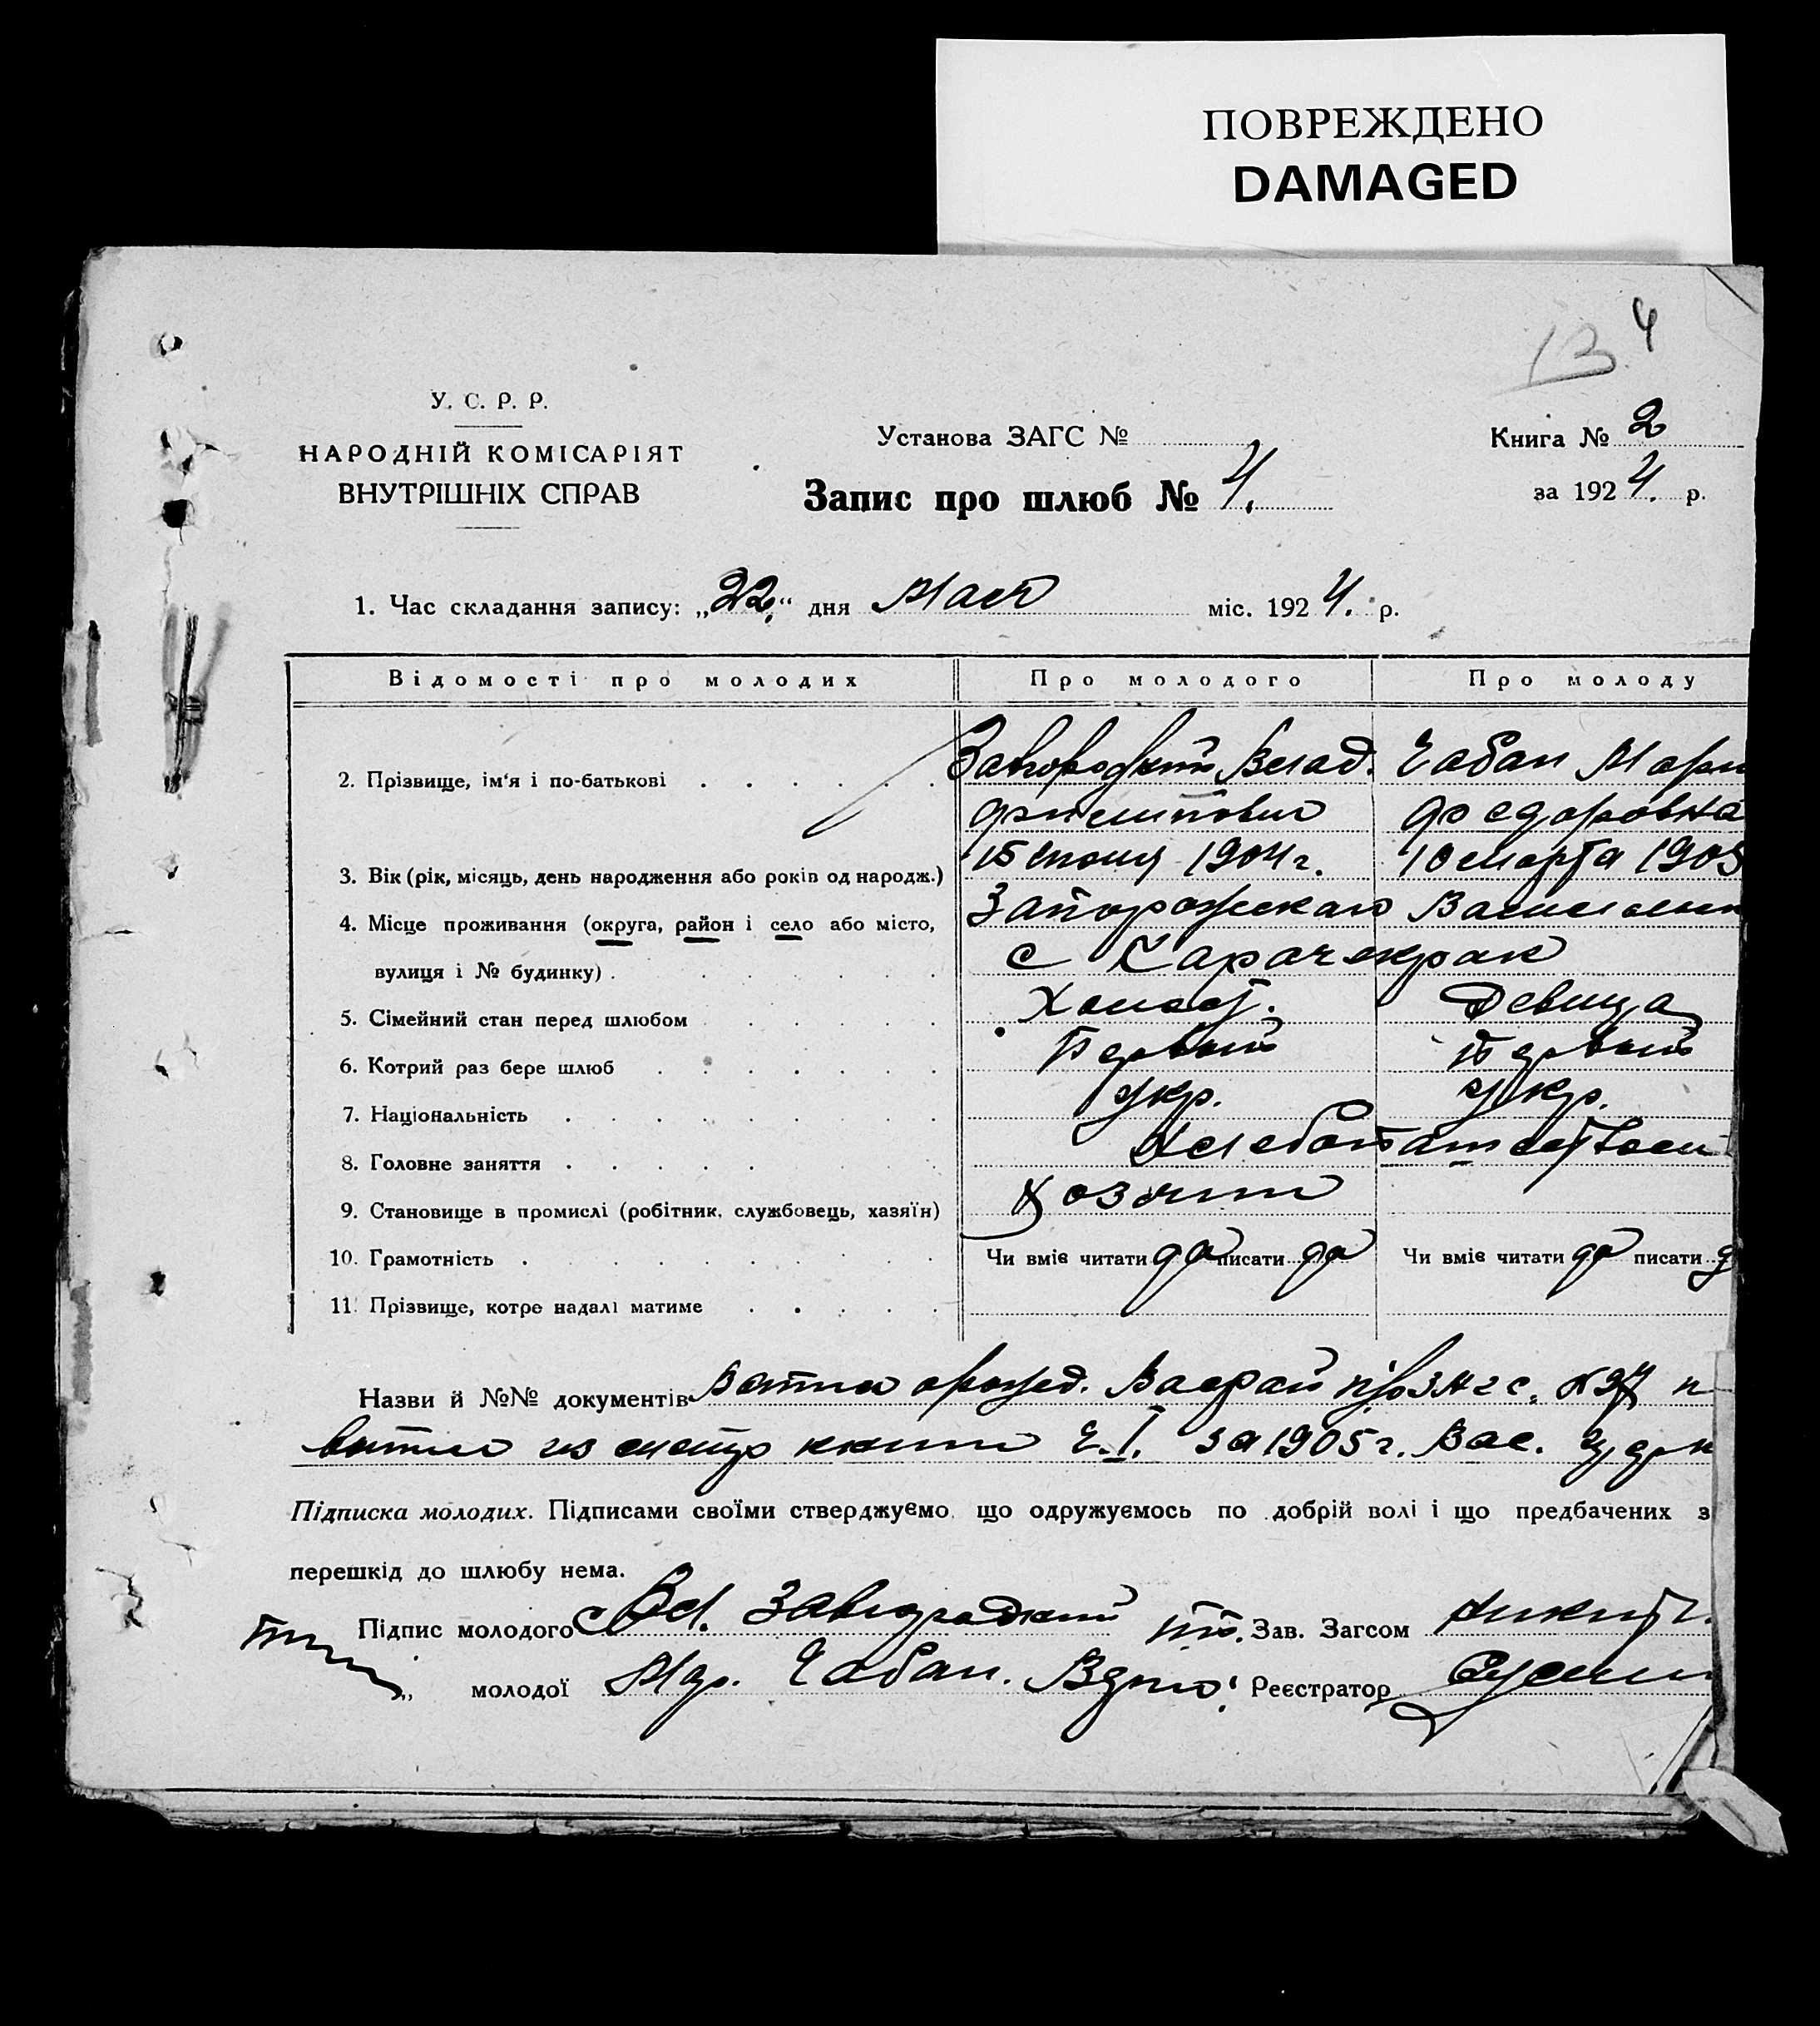 ПОВРЕЖДЕНО
DAMAGED
13 4
У. С. Р. Р.
НАРОДНІЙ КОМІСАРІЯТ
ВНУТРІШНІХ СПРАВ
Установа ЗАГС №
Запис про шлюб № 4.
Книга № 2
за 1924. р.
1. Час складання запису: „22“ дня Мая міс. 1924. р.
Відомості про молодих Про молодого Про молоду
2. Прізвище, ім'я і по-батькові Влад. Чабан Мари
Филипович Федоровна
3. Вік (рік, місяць, день народження або років од народж.) 15 1904 г. 10 марта 1905
4. Місце проживання (округа, район і село або місто, Запорожскаго Васильевк
вулиця і № будинку) с Карачекрак
5. Сімейний стан перед шлюбом Холост. Девица
6. Котрий раз бере шлюб Первый Первый
7. Національність Укр. Укр.
8. Головне заняття Хлебопашество
9. Становище в промислі (робітник, службовець, хазяїн) Хозяин
10. Грамотність Чи вміє читати да писати да Чи вміє читати да писати д
11. Прізвище, котре надалі матиме
Назви й №№ документів о рожд. Васрай
из метр книги Ч. I. за 1905 г. Вас.
Підписка молодих. Підписами своїми стверджуємо, що одружуємось по добрій волі і що предбачених з
перешкід до шлюбу нема.
Підпис молодого Вл. Завгородний Зав. Загсом
„ молодої Мар. Чабан. Реєстратор